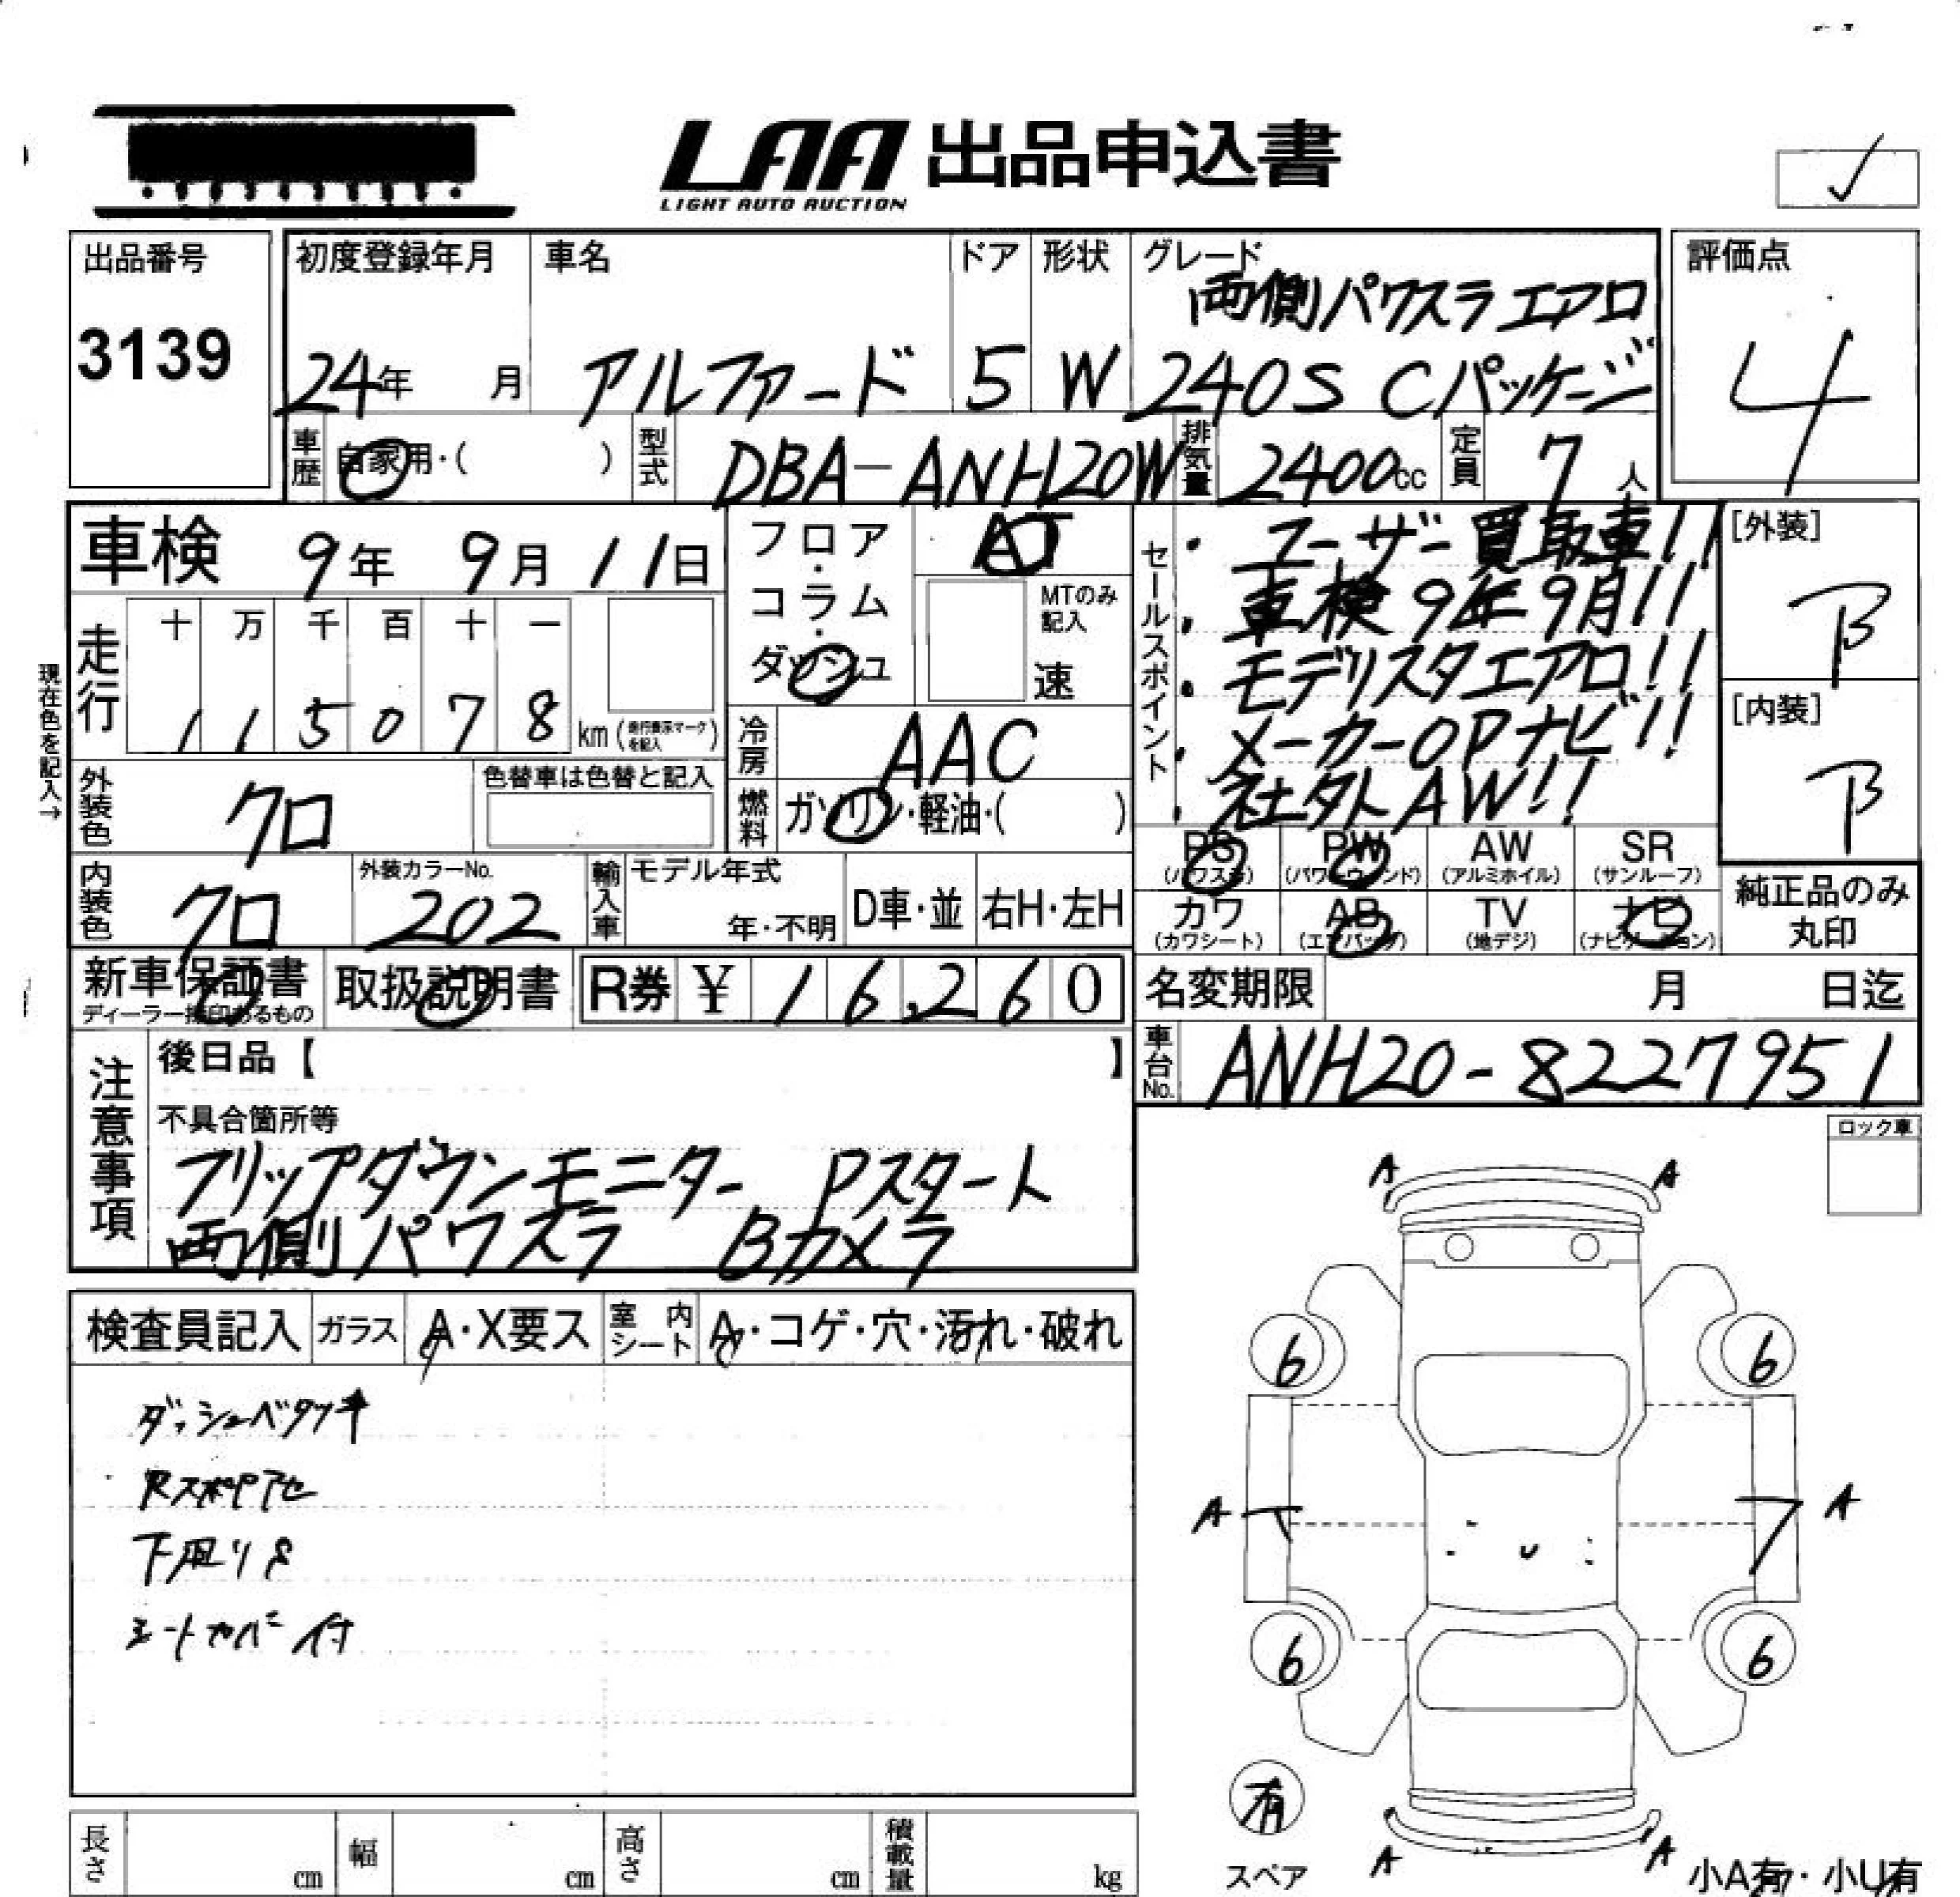 LAA 出品申込書
LIGHT AUTO AUCTION
✓
出品番号
3139
初度登録年月
24年 月
車名
アルファード
ドア
5
形状
W
グレード
両側パワスラ エアロ
240S Cパッケージ
評価点
4
車歴
自家用・( )
型式
DBA-ANH20W
排気量
2400cc
定員
7人
車検 9年 9月 11日
フロア・コラム・ダッシュ
AT
MTのみ記入
速
走行
十 万 千 百 十 一
1 1 5 0 7 8 km
(走行表示マークを記入)
現在色を記入→
冷房
AAC
燃料
ガソリン・軽油・( )
外装色
クロ
色替車は色替と記入
内装色
クロ
外装カラーNo.
202
輸入車
モデル年式
年・不明
D車・並
右H・左H
セールスポイント
・ユーザー買取車!!
・車検9年9月!!
・モデリスタエアロ!!
・メーカーOPナビ!!
・社外AW!!
[外装]
B
[内装]
B
PS (パワステ)
PW (パワーウィンド)
AW (アルミホイル)
SR (サンルーフ)
カワ (カワシート)
AB (エアバッグ)
TV (地デジ)
ナビ (ナビゲーション)
純正品のみ
丸印
新車保証書
ディーラー捺印あるもの
取扱説明書
R券 ¥ 16,260
名変期限 月 日迄
車台No.
ANH20-8227951
注意事項
後日品【 】
不具合箇所等
フリップダウンモニター Pスタート
両側パワスラ Bカメラ
ロック車
検査員記入
ガラス
A・X要ス
室内シート
A・コゲ・穴・汚れ・破れ
ダッシュベタツキ
下廻りS
シートカバー付
A A
6 6
A A
6 6
有
スペア
A A
小A有・小U有
長さ cm
幅 cm
高さ cm
積載量 kg